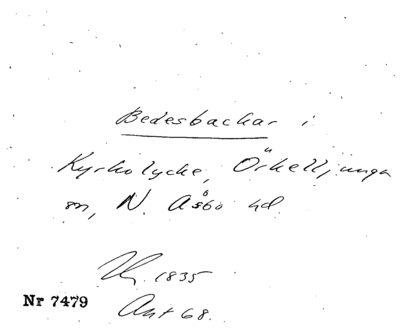 Bedesbackar i
Kyrkolycke, Örkelljunga
sn, N. Åsbo hd
1835
Nr 7479
Akt 68.